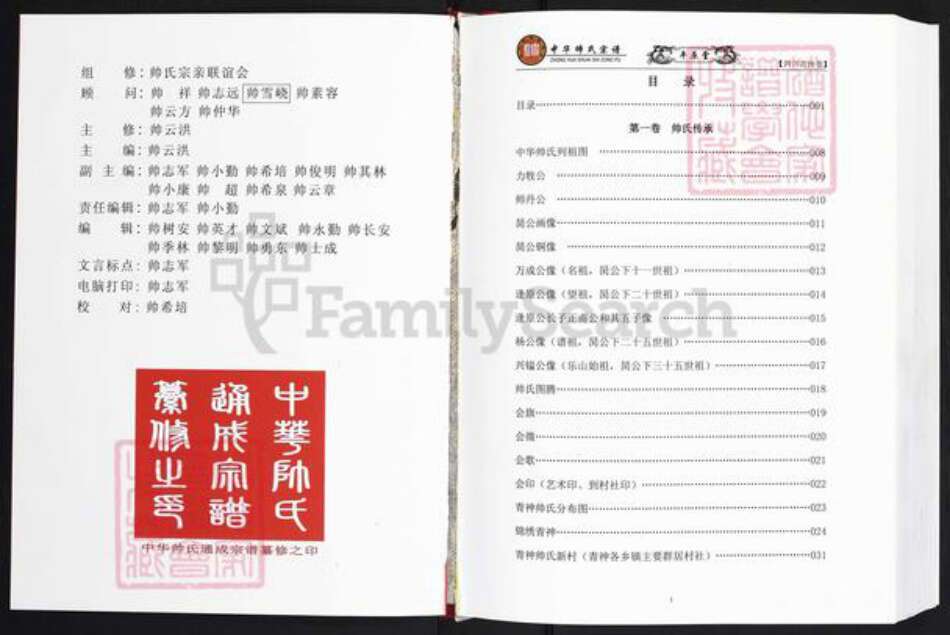 组 修：帅氏宗亲联谊会
顾 问：帅 祥 帅志远 帅雪晓 帅素容
帅云方 帅仲华
主 修：帅云洪
主 编：帅云洪
副 主 编：帅志军 帅小勤 帅希培 帅俊明 帅其林
帅小康 帅 超 帅希泉 帅云章
责任编辑：帅志军 帅小勤
编 辑：帅树安 帅英才 帅文斌 帅永勤 帅长安
帅季林 帅黎明 帅勇东 帅士成
文言标点：帅志军
电脑打印：帅志军
校 对：帅希培
中華帥氏
通成宗譜
纂修之印
中华帅氏通成宗谱纂修之印
FamilySearch
中华帅氏宗谱
ZHONG HUA SHUAI SHI ZONG PU
平原堂
目 录
目录 001
第一卷 帅氏传承
中华帅氏列祖图 008
力牧公 009
帅丹公 010
昺公画像 011
昺公铜像 012
万成公像（名祖，昺公下十一世祖） 013
逢原公像（望祖，昺公下二十世祖） 014
逢原公长子正斋公和其五子像 015
杨公像（谱祖，昺公下二十五世祖） 016
兴镒公像（乐山始祖，昺公下三十五世祖） 017
帅氏图腾 018
会旗 019
会徽 020
会歌 021
会印（艺术印、到村社印） 022
青神帅氏分布图 023
锦绣青神 024
青神帅氏新村（青神各乡镇主要群居村社） 031
1